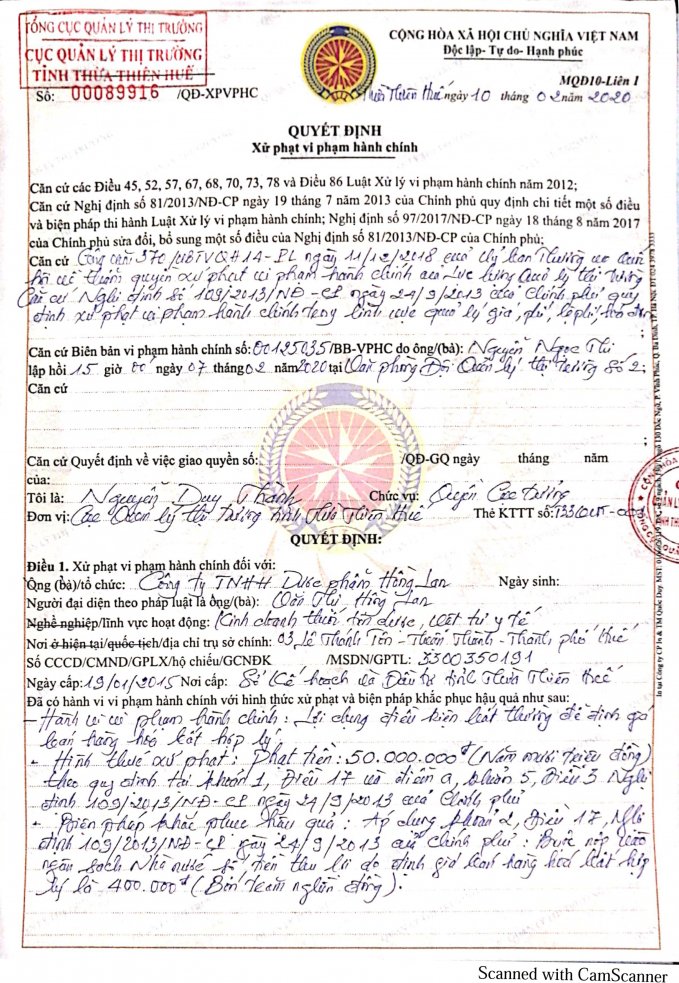 TỔNG CỤC QUẢN LÝ THỊ TRƯỜNG
CỤC QUẢN LÝ THỊ TRƯỜNG
TỈNH THỪA THIÊN HUẾ
Số: 00089916 /QĐ-XPVPHC
CỘNG HÒA XÃ HỘI CHỦ NGHĨA VIỆT NAM
Độc lập- Tự do- Hạnh phúc
MQĐ10-Liên 1
Thừa Thiên Huế ngày 10 tháng 02 năm 2020
QUYẾT ĐỊNH
Xử phạt vi phạm hành chính
Căn cứ các Điều 45, 52, 57, 67, 68, 70, 73, 78 và Điều 86 Luật Xử lý vi phạm hành chính năm 2012;
Căn cứ Nghị định số 81/2013/NĐ-CP ngày 19 tháng 7 năm 2013 của Chính phủ quy định chi tiết một số điều
và biện pháp thi hành Luật Xử lý vi phạm hành chính; Nghị định số 97/2017/NĐ-CP ngày 18 tháng 8 năm 2017
của Chính phủ sửa đổi, bổ sung một số điều của Nghị định số 81/2013/NĐ-CP của Chính phủ;
Căn cứ Công văn 370/UBTVQH14-PL ngày 11/12/2018 của Uỷ ban Thường vụ Quốc
hội về thẩm quyền xử phạt vi phạm hành chính của Lực lượng Quản lý thị trường
Căn cứ Nghị định số 109/2013/NĐ-CP ngày 24/9/2013 của Chính phủ quy
định xử phạt vi phạm hành chính trong lĩnh vực quản lý giá, phí, lệ phí, hóa đơn
Căn cứ Biên bản vi phạm hành chính số: 00125035/BB-VPHC do ông/(bà): Nguyễn Ngọc Thi
lập hồi 15 giờ 00 ngày 07 tháng 02 năm 2020 tại Văn phòng Đội Quản lý thị trường số 2;
Căn cứ
Căn cứ Quyết định về việc giao quyền số: /QĐ-GQ ngày tháng năm
của:
Tôi là: Nguyễn Duy Thành Chức vụ: Quyền Cục trưởng
Đơn vị: Cục Quản lý thị trường tỉnh Thừa Thiên Huế Thẻ KTTT số:
QUYẾT ĐỊNH:
Điều 1. Xử phạt vi phạm hành chính đối với:
Ông (bà)/tổ chức: Công ty TNHH Dược phẩm Hồng Lan Ngày sinh:
Người đại diện theo pháp luật là ông/(bà): Văn Thị Hồng Lan
Nghề nghiệp/lĩnh vực hoạt động: Kinh doanh thuốc tân dược, vật tư y tế
Nơi ở hiện tại/quốc tịch/địa chỉ trụ sở chính: 03 Lê Thánh Tôn - Thuận Thành - Thành phố Huế
Số CCCD/CMND/GPLX/hộ chiếu/GCNĐK /MSDN/GPTL: 3300350191
Ngày cấp: 19/01/2015 Nơi cấp: Sở Kế hoạch và Đầu tư tỉnh Thừa Thiên Huế
Đã có hành vi vi phạm hành chính với hình thức xử phạt và biện pháp khắc phục hậu quả như sau:
- Hành vi vi phạm hành chính: Lợi dụng điều kiện bất thường để định giá
bán hàng hóa bất hợp lý.
- Hình thức xử phạt: Phạt tiền: 50.000.000đ (Năm mươi triệu đồng)
theo quy định tại khoản 1, Điều 17 và điểm a, khoản 5, Điều 3 Nghị
định 109/2013/NĐ-CP ngày 24/9/2013 của Chính phủ
- Biện pháp khắc phục hậu quả: Áp dụng khoản 2, Điều 17, Nghị
định 109/2013/NĐ-CP ngày 24/9/2013 của Chính phủ: Buộc nộp vào
ngân sách Nhà nước số tiền thu lợi do định giá bán hàng hóa bất hợp
lý là 400.000đ (Bốn trăm nghìn đồng).
Scanned with CamScanner